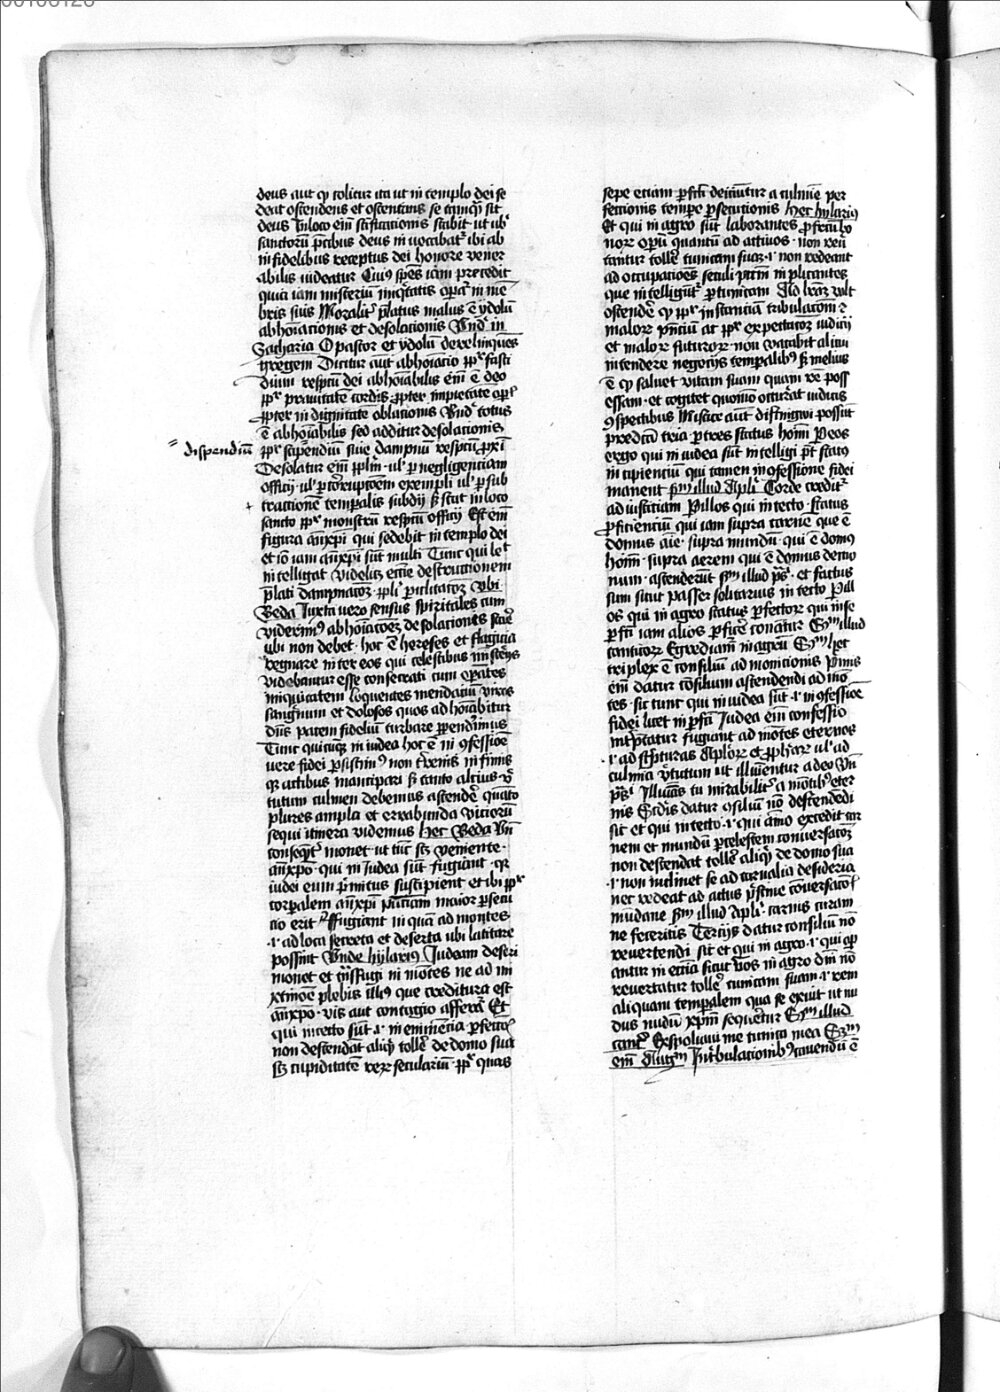 deus aut qꝫ colitur ita ut in templo dei se
deat ostendens et ostentans se tamqꝫ sit
deus In loco em̄ sc̄ificationis stabit ut ub
sanctorū p̄cibus deus in uocabatᷣ ibi ab
in fidelibus receptus dei honore vener
abilis uideatur Cuiꝰ spēs iam precedit
quia iam misterium iniqͥtatis opatᷣ in mē
bris suis Moraliťᷣ p̄latus malus ē ydolū
abhoīationis et desolationis Vndᷣ in
Zacharia O pastor et ydolū derelinques
gregem Dicitur aut abhoīatio ꝓpᷣ fasti
dium respctū dei abhoīabilis em̄ ē deo
ꝓpᷣ prauitatē cordis ꝓpter impietatē opᷣ
ꝓpter in dignitatē oblationis Vndᷣ totus
ē abhoīabilis sed additur desolationis
dispendiū
ꝓpᷣ stipendiū siue dampnū respctū ꝓxī
Desolatur em̄ ppl̄m ulᷣ ꝑ negligentiam
officij ulᷣ ꝑ corruptōem exempli ulᷣ ꝑ sub
tractionē temporalis subdij Sꝫ stat in loco
sancto ꝓpᷣ monstrū respctū officij Est em̄
figura an̄xpi qui sedebit in templo dei
et iō iam an̄xpi sūt multi Tunc qui leᵗ
intelligat Videlicꝫ ecc̄ie destructionem
p̄lati dampnatōꝫ ppl̄i ꝑ uilitatōꝫ Vbi
Beda Iuxta uero sensus spiritales cum
viderimꝰ abhoīatōeꝫ desolationis stare
ubi non debet hoc ē hereses et flagitia
regnare inter eos qui celestibus misterijs
videbantur esse consecrati cum opātes
iniquitatem loquentes mendatiū viros
sanguinū et dolosos quos ad hoīabitur
dn̄s patem fideliū turbare ꝓpendimus
Tunc quicūqꝫ in iudea hoc ē in ꝯfessioē
uere fidei ꝑsistimꝰ non tˀrenis in fimis
qꝫ actibus mancipari sꝫ tanto altius vᷣ
tutum culmen debemus ascendeᷣ quāto
plures ampla et errabunda vitiorū
sequi itinera videmus hec Beda Vn̄
conseqᷣᵗ monet ut tūc scꝫ veniente
an̄xpo qui in Iudea sūt fugiant qꝫ
iudei eum pᷣmitus suscipient et ibi ꝓpᷣ
corpalem an̄xpi pn̄tiam maior ꝑsecu
tio erit ffugiant in quā ad montes
.i. ad loca secreta et deserta ubi latitare
possint Vnde hylariꝰ Iudeam deseri
monet et tn̄sfugi in mōtes ne ad mi
xtinoē plebis illiꝰ que creditura est
an̄xpo vis aut contagio afferatᷣ Et
qui in tecto sūt .i. in eminētia ꝑfectōᷣ
non descendāt aliqͥ tolleᷣ de domo sua
scꝫ cupiditatē reꝝ seculariū ꝓpᷣ quas
sepe etiam ꝑfcti deiciūtur a culmine per
fectionis tempe ꝑsecutionis hec hylariꝰ
Et qui in agro sūt laborantes ꝓ fctū bo
norꝝ opū quantū ad actiuos non reū
tantur tolleᷣ tunicam suaꝫ .i. non redeant
ad occupatioēs seculi
que intelligūtᷣ ꝑ tunicam Ad lrāꝫ vult
ostendeᷣ qꝫ ꝓpᷣ instanciā tribulatiōꝫ ꝛ
maloꝝ pn̄tiū ac ꝓpᷣ expectatōꝫ iudicij
et maloꝝ futuroꝝ non vacabit alicui
intendere negocijs tempalibꝰ sꝫ melius
ē qꝫ saluet vitam suam quam rē poss
essam et cogitet quomō occurrat iudicis
ꝯspectibus Mistice aut distingwi possūt
predictā tria ꝑ tres status hoīm Per eos
ergo qui in iudea sūt intelligi pn̄t status
in cipientiū qui tamen in ꝯfessione fidei
manent sᷣm illud Apli Corde creditᷣ
ad iusticiam Per illos qui in tecto status
proficientiū qui iam supra carnē que ē
domus aīe supra mundū qui ē domꝰ
hoīm supra aerem qui ē domus demo
num ascenderūt sᷣm illud ps̄ et factus
sum sicut passer solitarius in tecto Per ill
os qui in agro status ꝑfectoꝝ qui in se
ꝑfcti iam alios ꝑficeᷣ conātur Sᷣm illud
canticoꝝ Egrediamᷣ in agrū Sᷣm hec
triplex ē consiliū ad monitionis Primis
em̄ datur cōsilium ascendendi ad mō
tes sic tunc qui in iudea sūt .i. in ꝯfessioē
fidei licet in ꝑfcti Iudea em̄ confessio
intpretatur fugiant ad mōtes eternos
.i. ad scripturas Aploꝝ et ꝓphaꝝ ulᷣ ad
culmīa vᷣtutum ut illumentur a deo Vn̄
ps̄ Illumīās tu mirabiliťᷣ a montibꝰ eter
nis Scd̄is datur ꝯsiliū nō descendēdi
sic et qui in tecto .i. qui aīmo excedit car
nem et mundū ꝑ celestem conuersatōꝫ
non descendat tolleᷣ aliqͥ de domo sua
.i. non inclinet se ad carnalia desideria
nec redeat ad actus pᷣstine cōuersatōᷣ
mūdane sᷣm illud Apli carnis curam
ne feceritis Tercijs datur consiliū nō
reuertendi sic et qui in agro .i. qui op
antur in ecc̄ia sicut boos in agro dīn nō
reuertatur tolleᷣ tunicam suam .i. rem
aliquam tempalem qua se exiuit ut nu
dus nudū xpm̄ sequetur Sᷣm illud
cantiᷣ Expoliaui me tunica mea Sᷣm
em̄ Augᷣm In tᷣbulationibꝰ cauendū ē